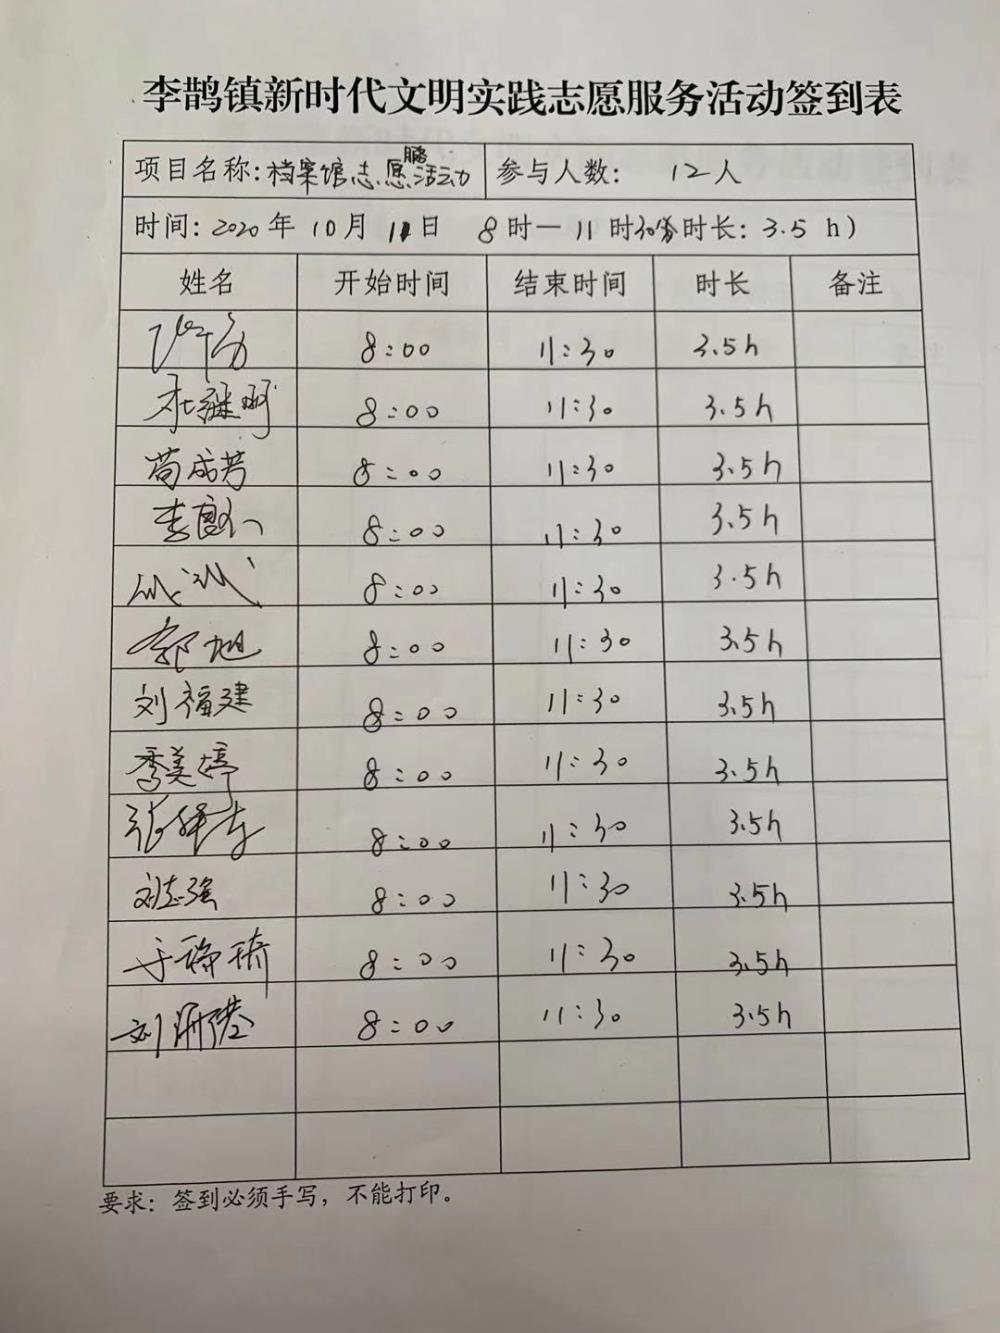 李鹊镇新时代文明实践志愿服务活动签到表
项目名称: 档案馆志愿服务活动 参与人数: 12人
时间: 2020年10月11日 8时—11时30分 时长: 3.5 h)
姓名 开始时间 结束时间 时长 备注
8:00 11:30 3.5h
杜继明 8:00 11:30 3.5h
苟成芳 8:00 11:30 3.5h
李 8:00 11:30 3.5h
8:00 11:30 3.5h
郭旭 8:00 11:30 3.5h
刘福建 8:00 11:30 3.5h
季美婷 8:00 11:30 3.5h
张 8:00 11:30 3.5h
刘志强 8:00 11:30 3.5h
于 琦 8:00 11:30 3.5h
刘 8:00 11:30 3.5h
要求: 签到必须手写，不能打印。